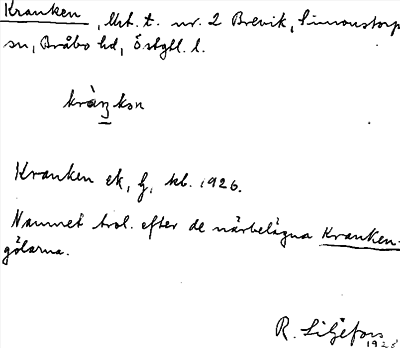 Kranken, Utj. t. nr. 2 Brevik, Simonstorps
sn, Bråbo hd, Östgtl. l.
Kranken ek, kb. 1926.
Namnet trol. efter de närbelägna Kranken-
gölarna.
R. Liljefors